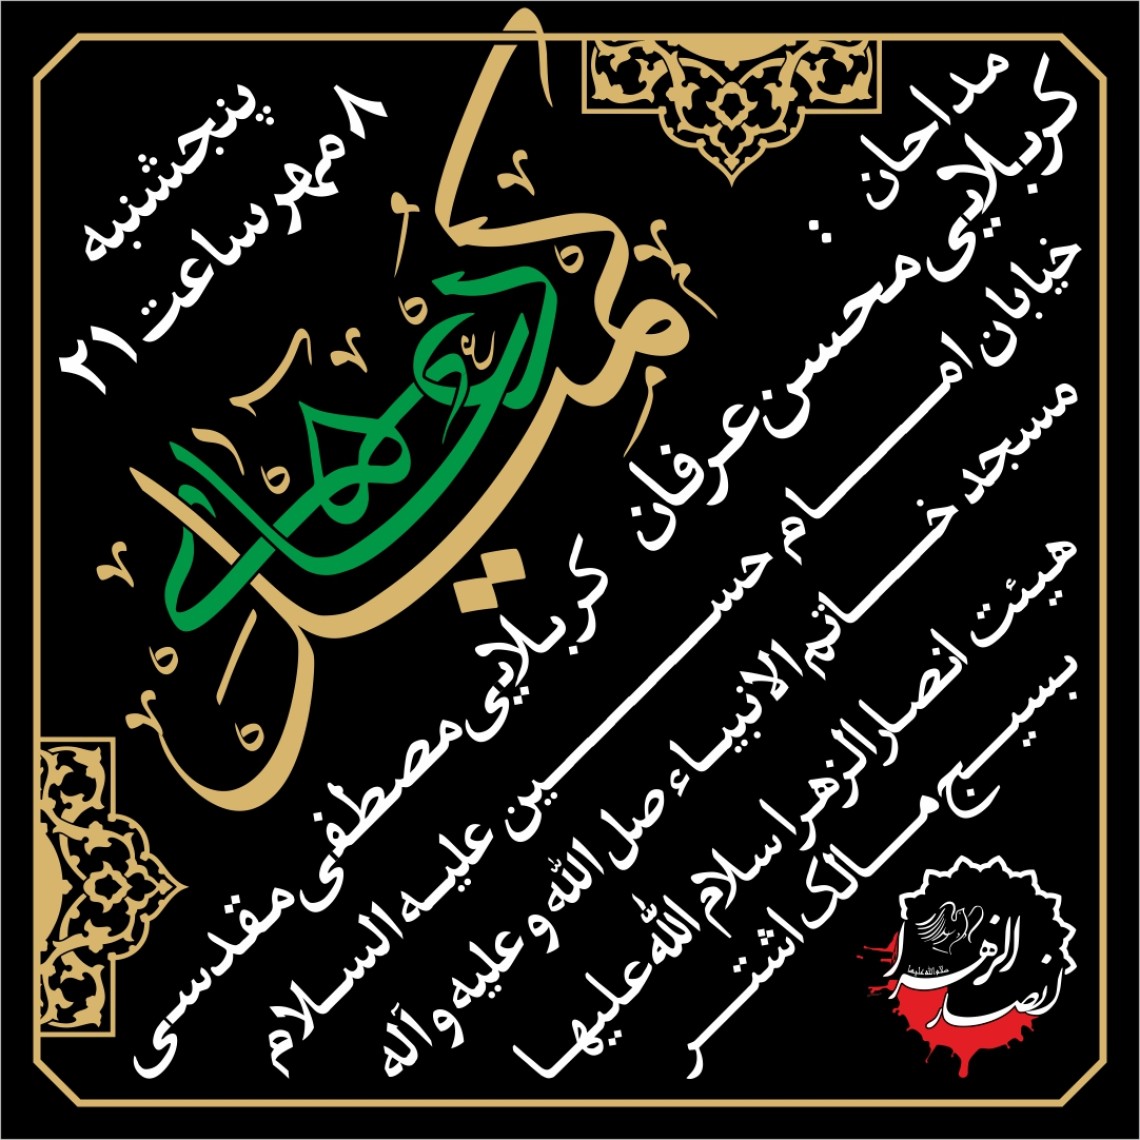 پنجشنبه
۸ مهر ساعت ۲۱
دعای
کمیل
مداحان :
کربلایی محسن عرفان کربلایی مصطفی مقدسی
خیابان امام حسین علیه السلام
مسجد خاتم الانبیاء صل الله و علیه و آله
هیئت انصار الزهرا سلام الله علیها
بسیج مالک اشتر
انصار الزهرا
سلام الله علیها